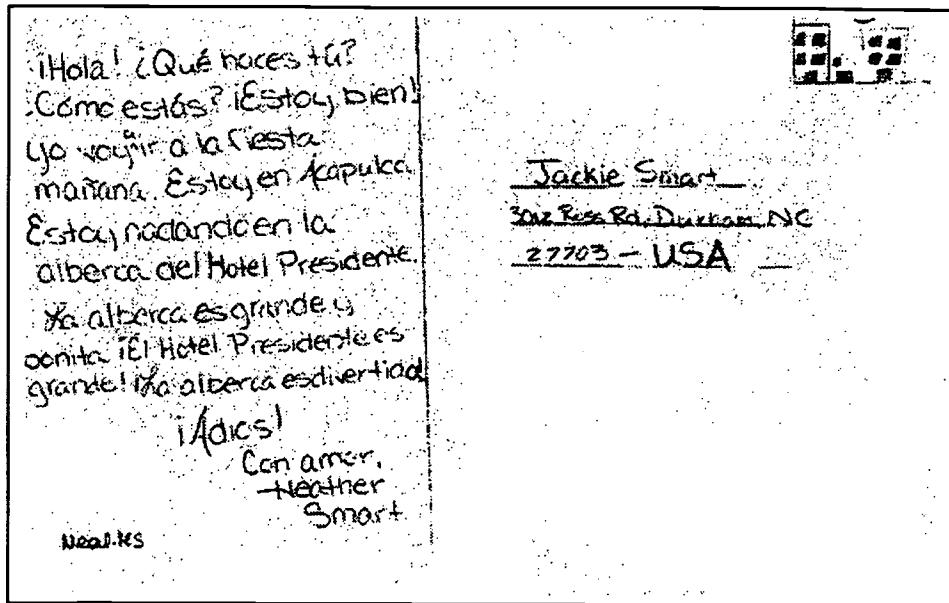 ¡Hola! ¿Qué haces tú?
Cómo estás? ¡Estoy bien!
yo voy a ir a la fiesta
mañana. Estoy en Acapulca
Estoy nadando en la
alberca del Hotel Presidente.
La alberca es grande y
bonita ¡El Hotel Presidente es
grande! ¡La alberca es divertida!
¡Adios!
Con amor,
-Heather
Smart
Neal MS
Jackie Smart
Rd, Durham, NC
27703 - USA